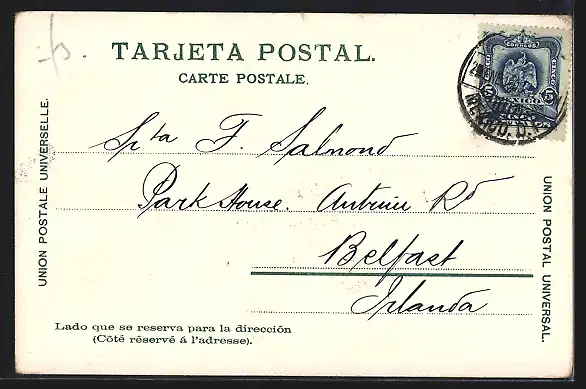 TARJETA POSTAL.
CARTE POSTALE.
UNION POSTALE UNIVERSELLE.
Sṗta F. Salmond
Park House. Antrim Rd
Belfast
Irlanda
UNION POSTAL UNIVERSAL.
Lado que se reserva para la dirección
(Côté réservé á l'adresse).
CORREOS
MEXICO
5
MEXICO. D.F.